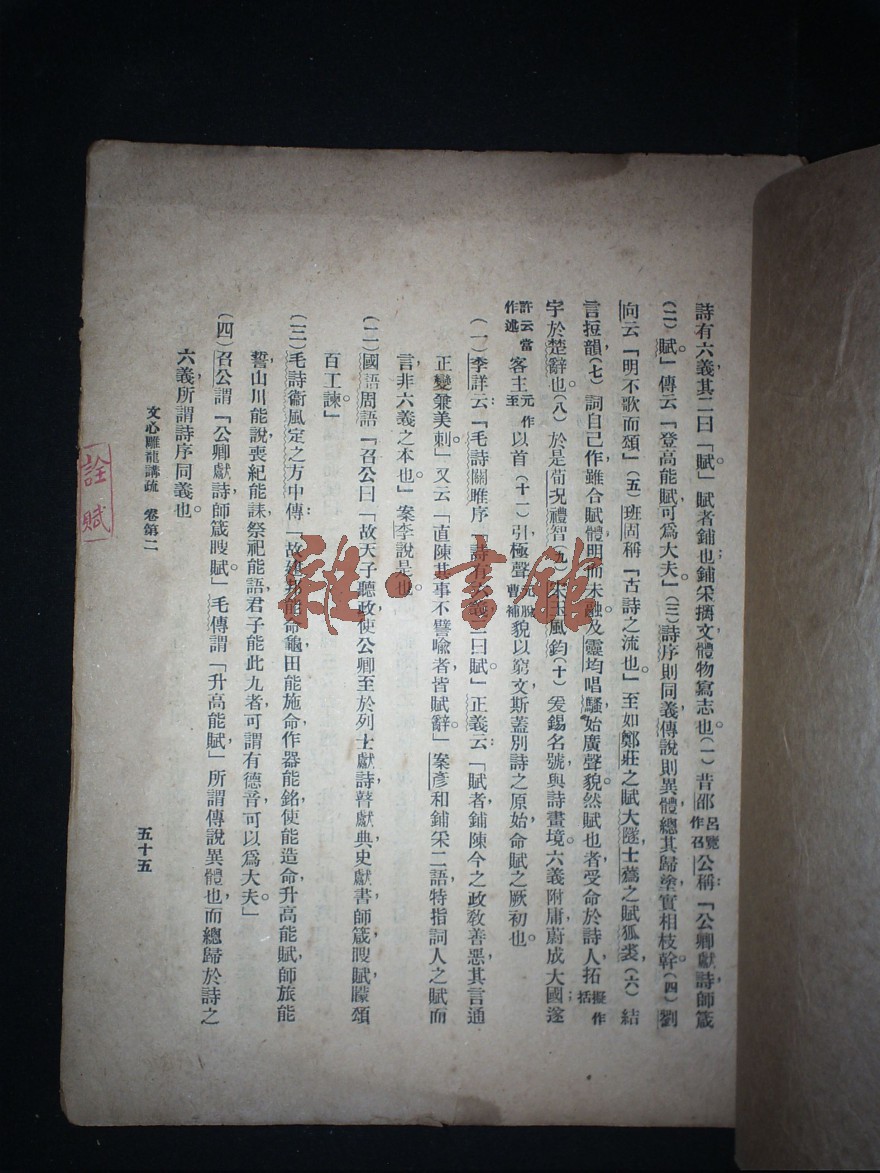 詩有六義其二曰「賦」賦者鋪也鋪采摛文體物寫志也。(一)昔邵呂覽作召公稱:「公卿獻詩師箴
賦。」傳云「登高能賦可爲大夫。」(三)詩序則同義傳說則異體總其歸塗實相枝幹。(四)劉
(二)
向云「明不歌而頌」(五)班固稱「古詩之流也」。至如鄭莊之賦大隧士蔿之賦狐裘,(六)結
言𢭏韻,(七)詞自己作雖合賦體明而未融及靈均唱騷始廣聲貌。然賦也者受命於詩人拓擬作括
宇於楚辭也。(八)於是荀況禮智(九)宋玉風鈞(十)爰錫名號與詩畫境。六義附庸蔚成大國;遂
許云當作述客主元作至以首(十一)引極聲元脫曹補貌以窮文斯蓋別詩之原始命賦之厥初也。
(一)李詳云:「毛詩關雎序,詩有六義二曰賦」正義云:「賦者鋪陳今之政教善惡其言通
正變兼美刺。」又云「直陳其事不譬喩者皆賦辭。」案彥和鋪采二語特指詞人之賦而
言,非六義之本也。案李說是也。
(二)國語周語「召公曰「故天子聽政使公卿至於列士獻詩瞽獻典史獻書師箴瞍賦矇頌
百工諫。」
(三)毛詩衞風定之方中傳:「故建邦能命龜田能施命作器能銘使能造命升高能賦,師旅能
誓山川能說,喪紀能誄祭祀能語,君子能此九者可謂有德音,可以爲大夫。」
(四)召公謂「公卿獻詩師箴瞍賦」毛傳謂「升高能賦,」所謂傳說異體也而總歸於詩之
六義所謂詩序同義也。
文心雕龍講疏 卷第二
五十五
詮賦
雜·書館